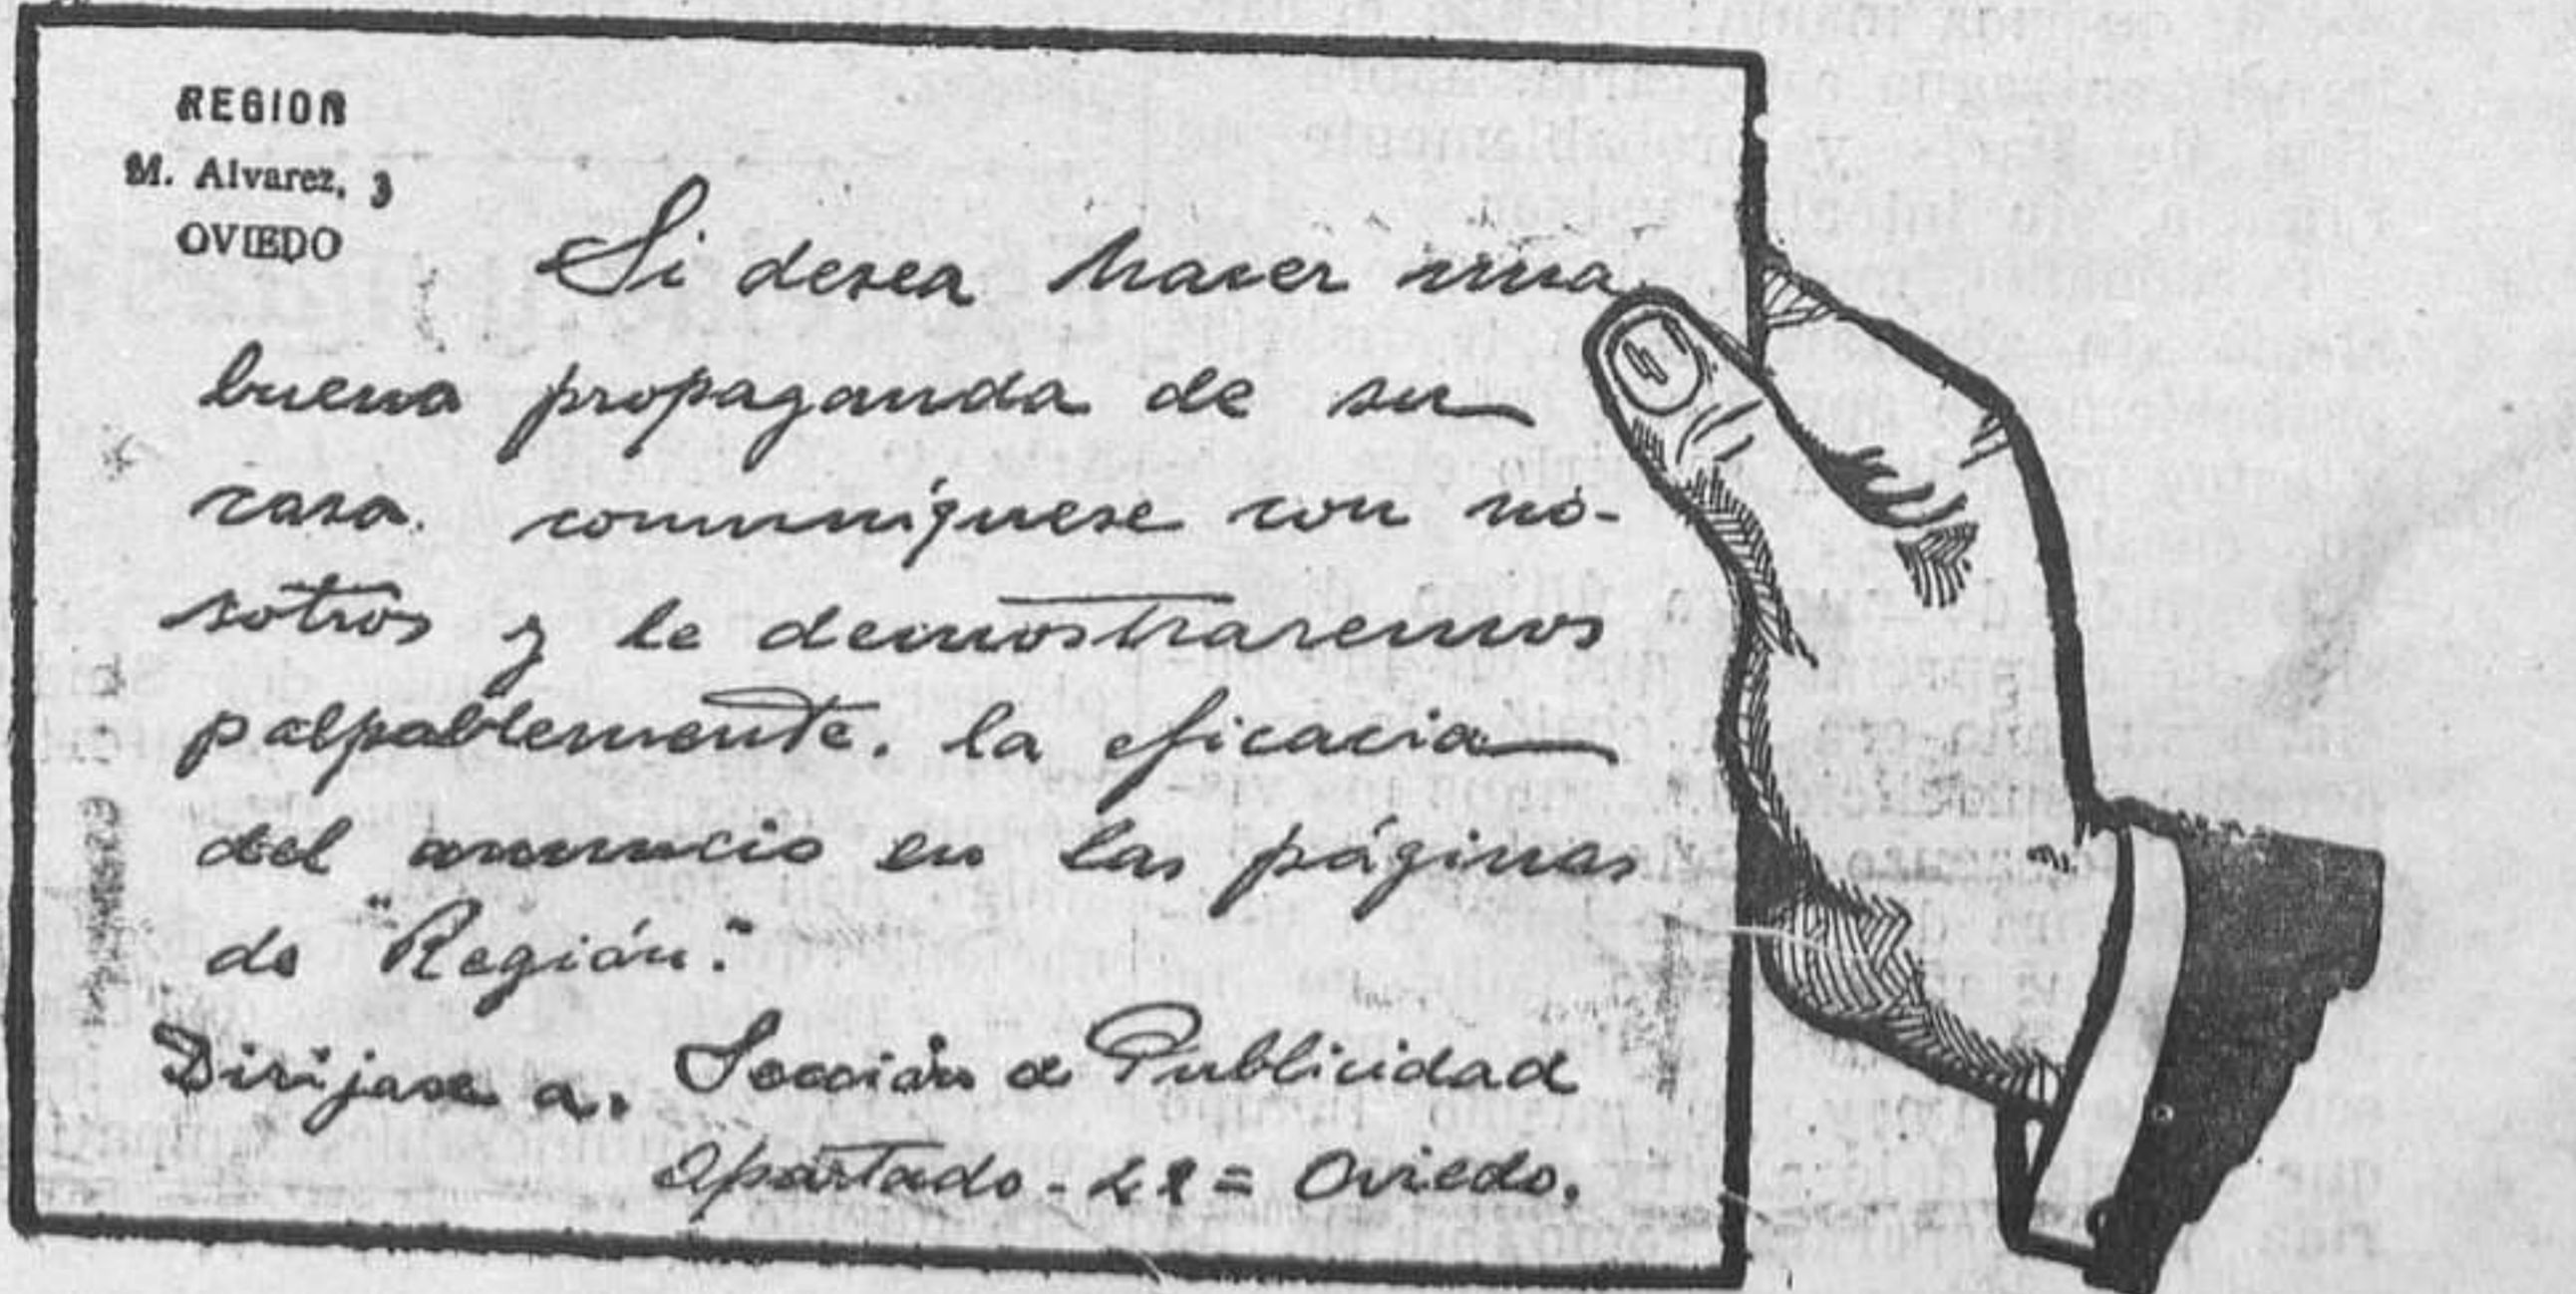 REGION
M. Alvarez, 3
OVIEDO
Si desea hacer una
buena propaganda de su
casa. comuníquese con no-
sotros y le demostraremos
palpablemente. la eficacia
del anuncio en las páginas
de "Región".
Dirijase a. Sección de Publicidad
Apartado - = Oviedo.